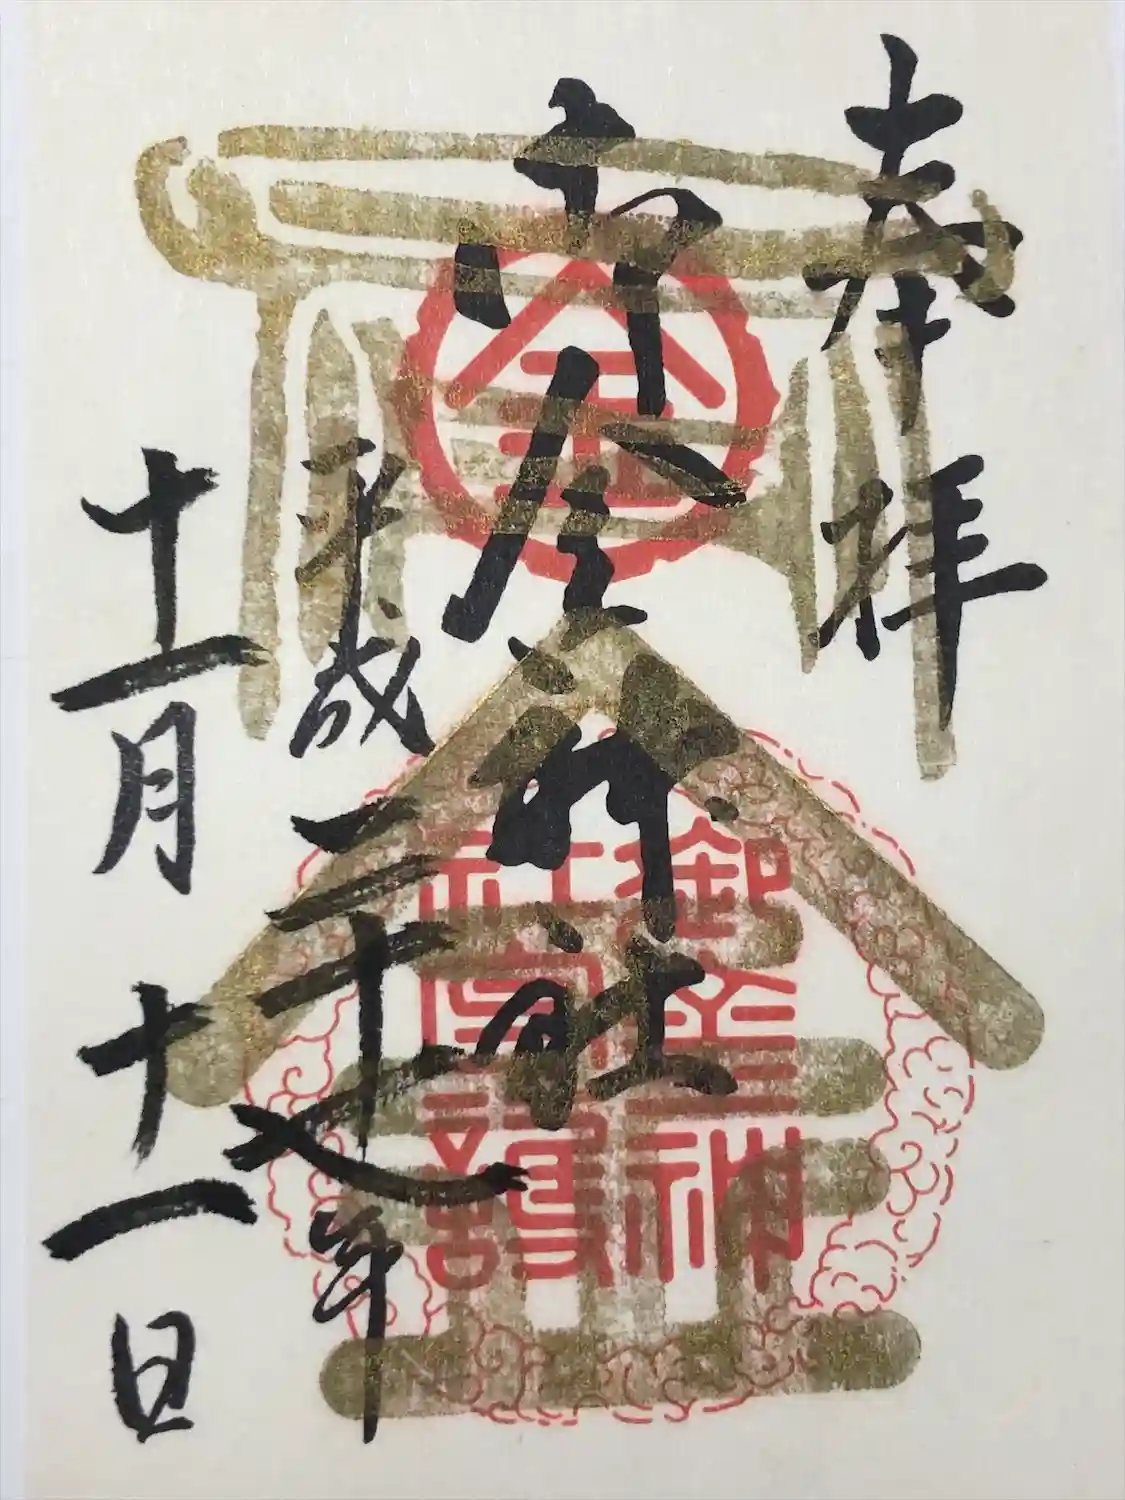 奉拝
御金神社
平成二十年
十一月十一日
金
御金神
社